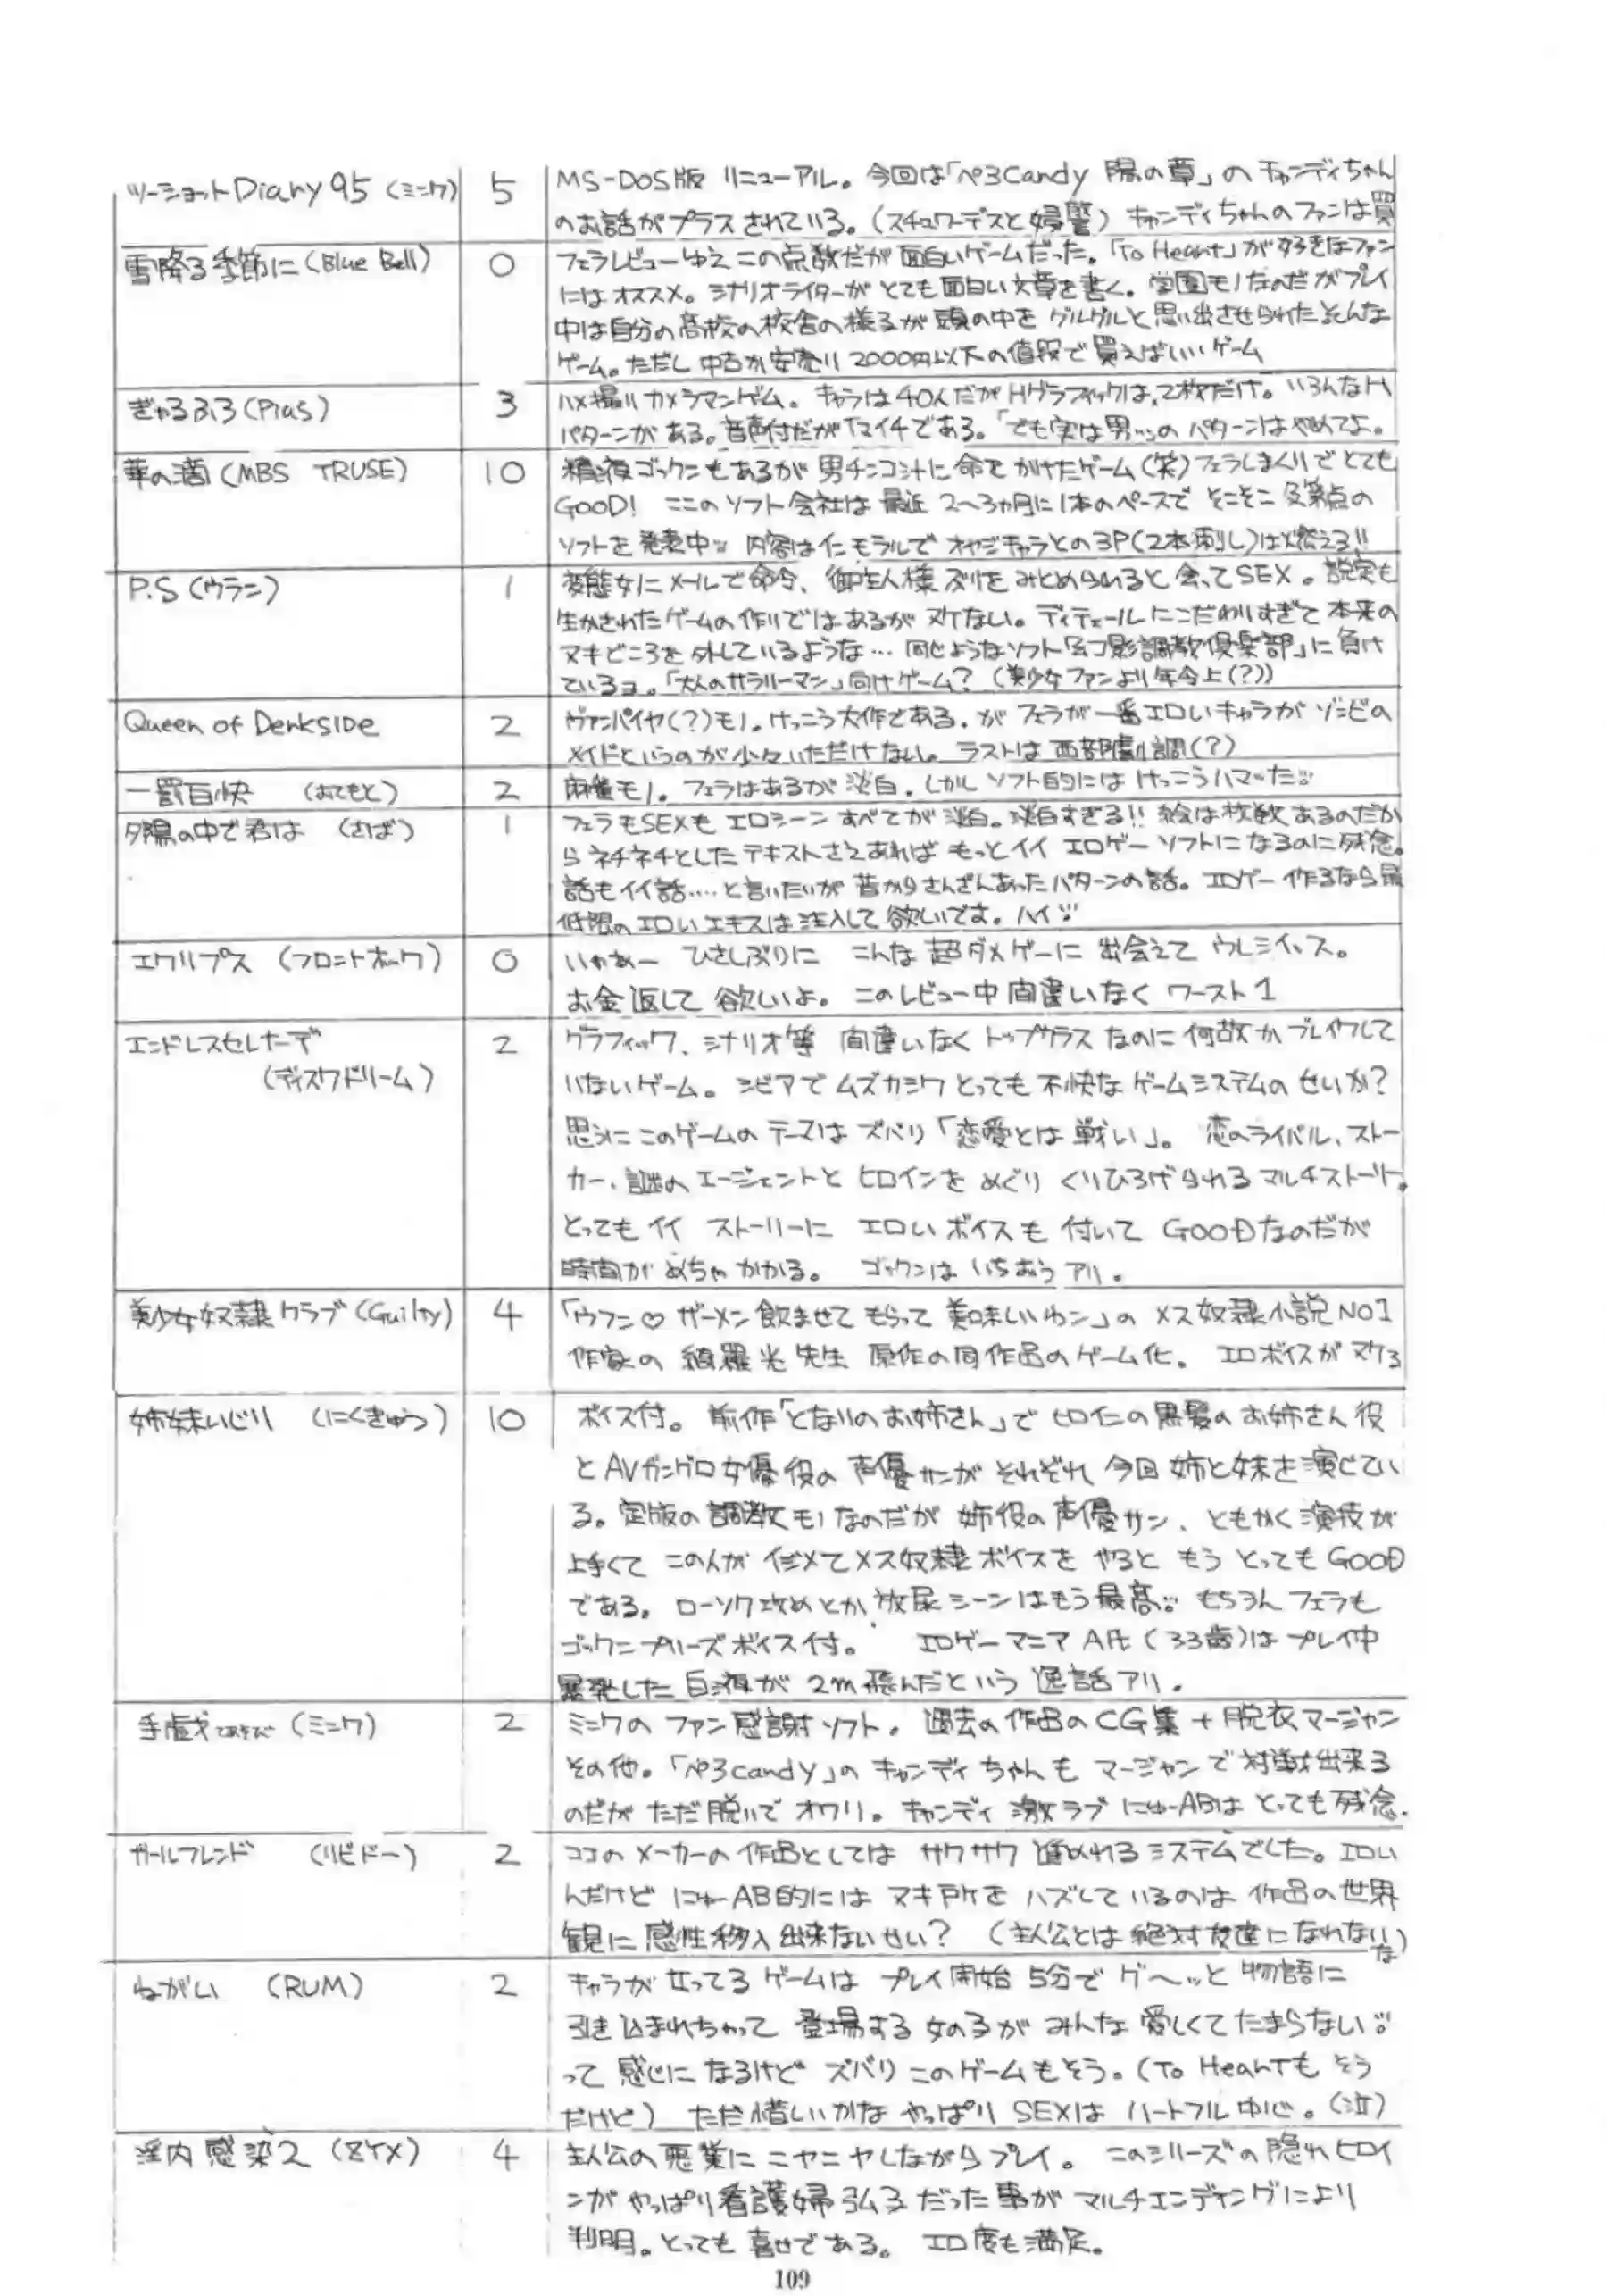 ツーショットDiary95（ミンク） 5 MS-DOS版 リニューアル。今回は「ぺろCandy 陽の章」のキャンディちゃん
のお話がプラスされている。（スチュワーデスと婦警）キャンディちゃんのファンは買
雪降る季節に（Blue Bell） 0 フェラレビューゆえこの点数だが面白いゲームだった。「To Heart」が好きなファン
にはオススメ。シナリオライターがとても面白い文章を書く。学園モノなのだがプレイ
中は自分の高校の校舎の様子が頭の中をグルグルと思い出させられたそんな
ゲーム。ただし中古か安売り2000円以下の値段で買えばいいゲーム
ぎゃるふろ（Pias） 3 ハメ撮りカメラマンゲム。キャラは40人だがHグラフィックは、2枚だけ。いろんなH
パターンがある。音声付だがイマイチである。「でも実は男…」のパターンはやめてよ。
華の滴（MBS TRUSE） 10 精液ゴックンもあるが男チンコ汁に命をかけたゲーム（笑）フェラしまくりでとても
GOOD! ここのソフト会社は最近2〜3ヵ月に1本のペースでそこそこ及第点の
ソフトを発表中!! 内容はインモラルでオヤジキャラとの3P（2本刺し）は燃える!!
P.S（ウラン） 1 変態女にメールで命令、御主人様ぶりをみとめられると会ってSEX。設定も
生かされたゲームの作りではあるがヌケない。ディテールにこだわりすぎて本来の
ヌキどころを外しているような… 同じようなソフト「幻影調教倶楽部」に負け
ているヨ。「大人のサラリーマン」向けゲーム？（美少女ファンより年令上（?））
Queen of Denkside 2 ヴァンパイヤ（?）モノ。けっこう大作である。がフェラが一番エロいキャラがゾンビの
メイドというのが少々いただけない。ラストは西部劇調（?）
一罰百快 （おてもと） 2 麻雀モノ。フェラはあるが淡白。しかしソフト的にはけっこうハマった!!
夕陽の中で君は （さば） 1 フェラもSEXもエロシーンすべてが淡白。淡白すぎる!! 絵は枚数あるのだか
らネチネチとしたテキストさえあればもっとイイ エロゲーソフトになるのに残念。
話もイイ話‥‥と言いたいが昔からさんざんあったパターンの話。エロゲー作るなら最
低限のエロいエキスは注入して欲しいです。ハイ!!
エクリプス （フロントホック） 0 いやあー ひさしぶりに こんな超ダメゲーに出会えてウレシイッス。
お金返して欲しいよ。このレビュー中間違いなくワースト1
エンドレスセレナーデ 2 グラフィック、シナリオ等 間違いなくトップクラスなのに何故かブレイクして
（ディスクドリーム） いないゲーム。シビアでムズカシクとっても不快なゲームシステムのせいか？
思うにこのゲームのテーマはズバリ「恋愛とは戦い」。恋のライバル、ストー
カー、謎のエージェントとヒロインをめぐりくりひろげられるマルチストーリー。
とってもイイ ストーリーに エロいボイスも付いてGOODなのだが
時間がめちゃかかる。 ゴックンはいちおうアリ。
美少女奴隷クラブ（Guilty） 4 「ウフン♡ ザーメン飲ませてもらって美味しいわン」のメス奴隷小説NO1
作家の綺羅光先生 原作の同作品のゲーム化。 エロボイスがヌケる
姉妹いじり （にくきゅう） 10 ボイス付。前作「となりのお姉さん」でヒロインの黒髪のお姉さん役
とAVガングロ女優役の声優サンがそれぞれ今回姉と妹を演じてい
る。定版の調教モノなのだが姉役の声優サン、ともかく演技が
上手くてこの人がイジメてメス奴隷ボイスをやるともうとってもGOOD
である。ローソク攻めとか放尿シーンはもう最高!! もちろんフェラも
ゴックンプリーズボイス付。 エロゲーマニアA氏（33歳）はプレイ中
暴発した白液が2m飛んだという逸話アリ。
手戯てあそび（ミンク） 2 ミンクのファン感謝ソフト。過去の作品のCG集＋脱衣マージャン
その他。「ぺろcandy」のキャンディちゃんもマージャンで対戦出来る
のだがただ脱いでオワリ。キャンディ激ラブにゅーABはとっても残念.
ガールフレンド （リビドー） 2 ココのメーカーの作品としてはサクサク進めれるシステムでした。エロい
んだけどにゅーAB的にはヌキ所をハズしているのは作品の世界
観に感性移入出来ないせい？（主人公とは絶対友達になれないな）
ねがい （RUM） 2 キャラが立ってるゲームはプレイ開始5分でグ〜ッと物語に
引き込まれちゃって登場する女の子がみんな愛しくてたまらない!!
って感じになるけどズバリこのゲームもそう。（To HeartTもそう
だけど）ただ惜しいかなやっぱりSEXはハートフル中心。（泣）
淫内感染2（ZYX） 4 主人公の悪業にニヤニヤしながらプレイ。このシリーズの隠れヒロイ
ンがやっぱり看護婦弘子だった事がマルチエンディングにより
判明。とっても喜せである。エロ度も満足。
109